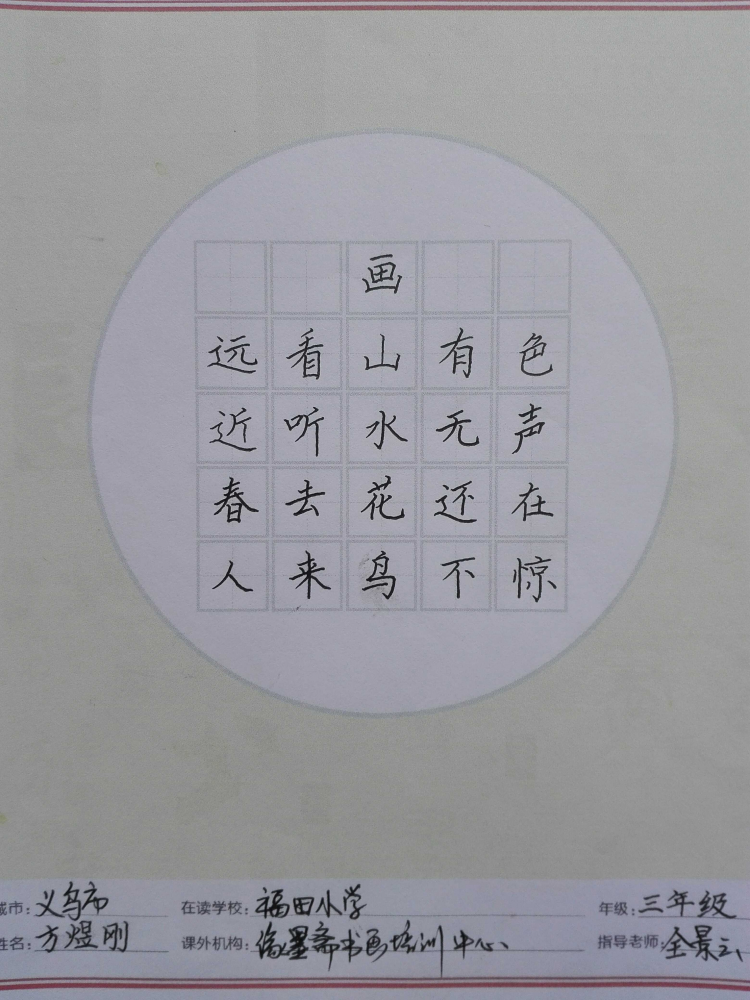 画
远看山有色
近听水无声
春去花还在
人来鸟不惊
城市: 义乌市 在读学校: 福田小学 年级: 三年级
姓名: 方煜刚 课外机构: 墨斋书画培训中心 指导老师: 全景云